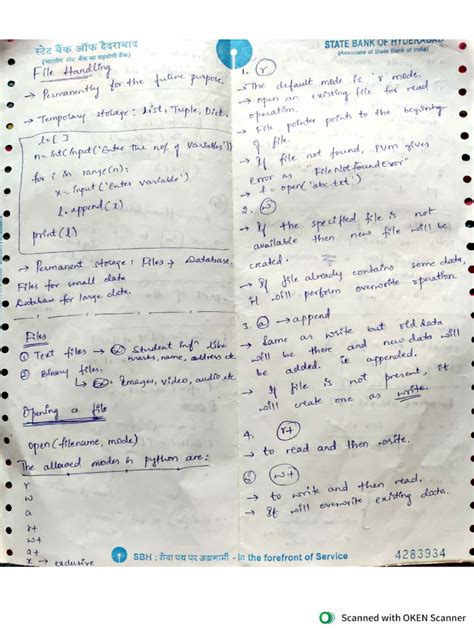 स्टेट बैंक ऑफ हैदराबाद
(भारतीय स्टेट बैंक का सहयोगी बैंक)
File Handling
→ Permanently for the future purpose.
→ Temporary storage: list, Tuple, Dict.
l=[ ]
n=int(input('Enter the no of variables'))
for i in range(n):
x=input('Enter variable')
l.append(x)
print(l)
→ Permanent storage: Files → Database
Files for small data
Database for large data.
Files
① Text files → Student info like
marks, name, address etc
② Binary files.
↳ Images, video, audio etc
Opening a file
open(filename, mode)
The allowed modes in python are:
r
w
a
r+
w+
a+
x → exclusive
STATE BANK OF HYDERABAD
(Associate of State Bank of India)
1. r
→ The default mode is 'r' mode.
→ open an existing file for read
operation.
→ File pointer points to the
of file.
→ If file not found, PVM gives
error as "FileNotFoundError"
→ l = open('abc.txt')
2. w
→ If the specified file is not
available then new file will be
created.
→ If file already contains some data,
it will perform overwrite operation.
3. a → append
→ Same as write but old data
will be there and new data will
be added. ie appended.
→ If file is not present, it
will create one as write.
4. r+
→ to read and then write.
w+
→ to write and then read.
→ It will overwrite existing data.
SBH : सेवा पथ पर अग्रगामी - In the forefront of Service
4283934
Scanned with OKEN Scanner